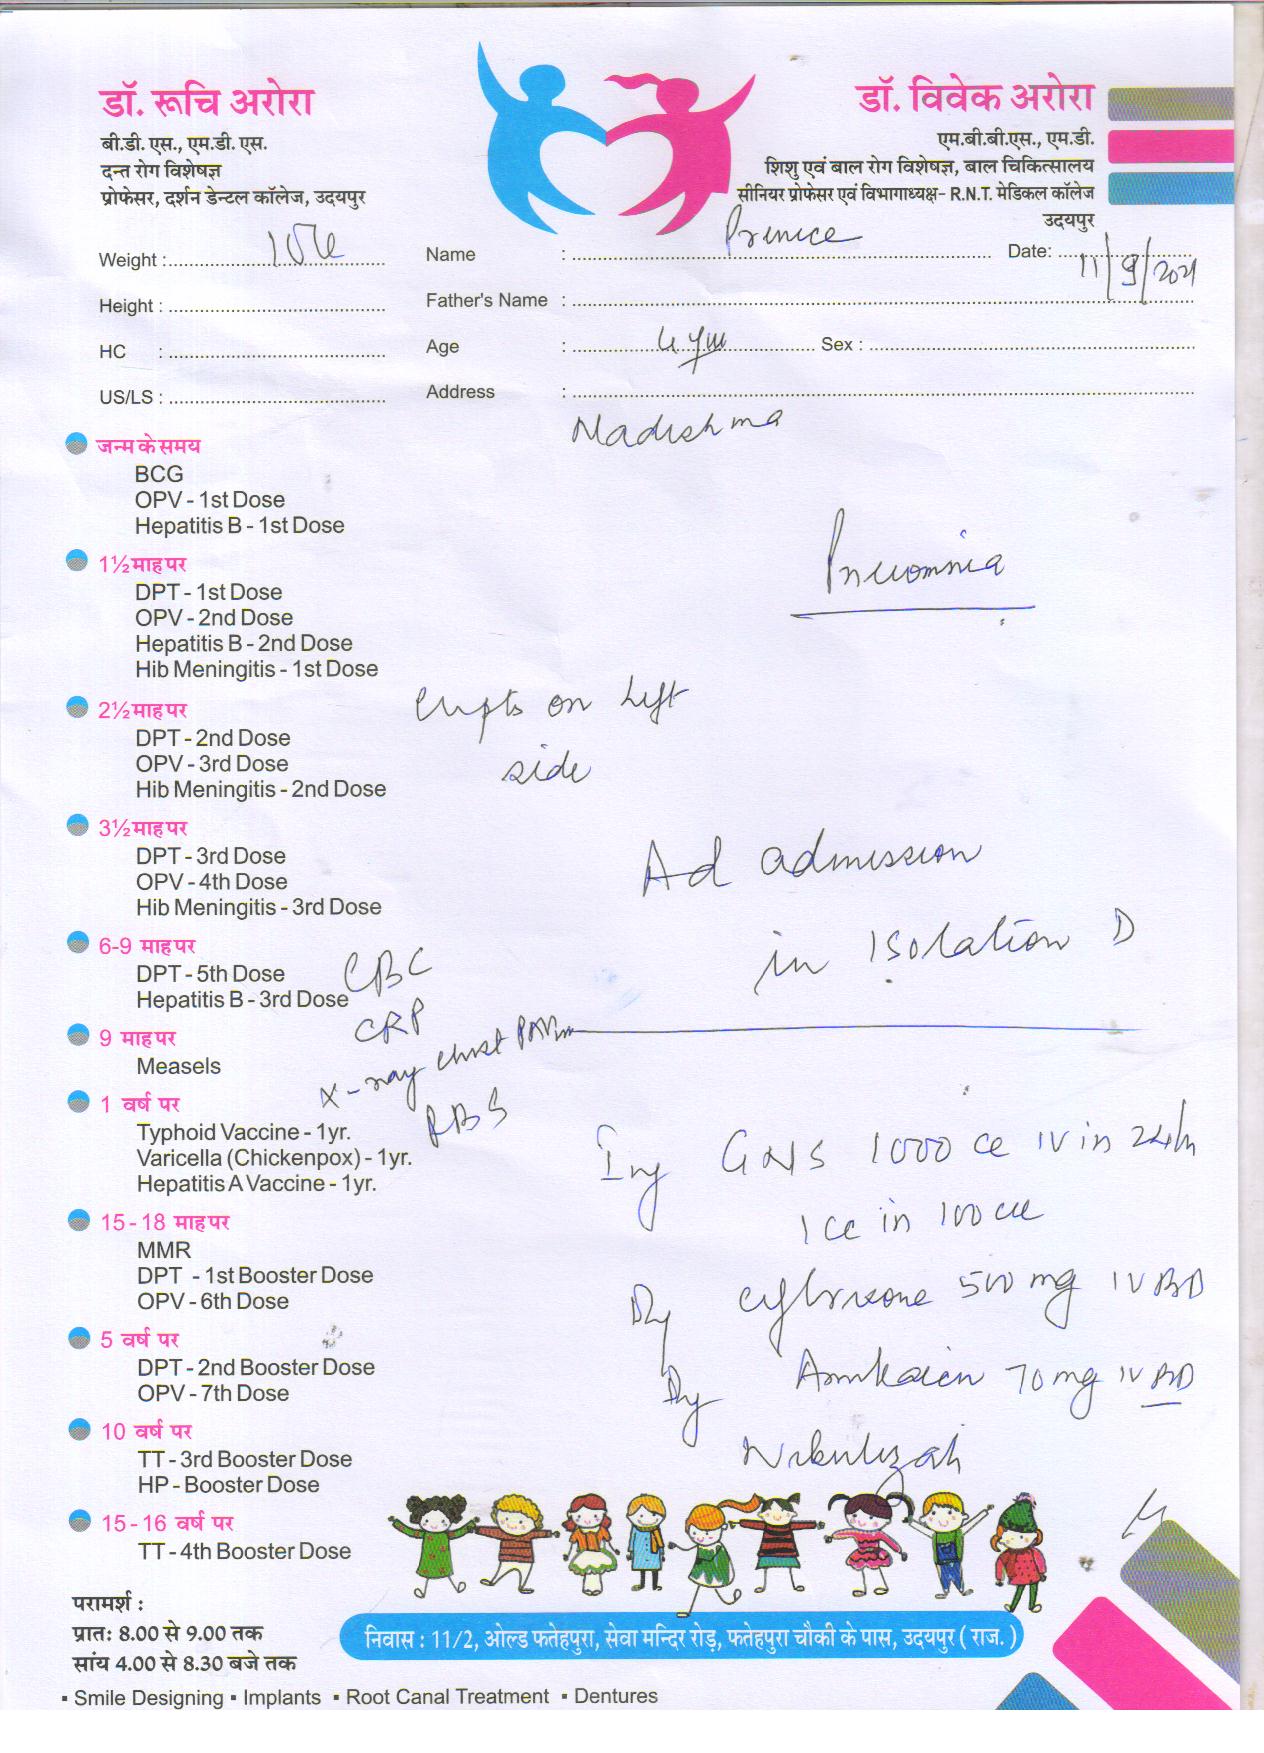 डॉ. रूचि अरोरा
बी.डी. एस., एम.डी. एस.
दन्त रोग विशेषज्ञ
प्रोफेसर, दर्शन डेन्टल कॉलेज, उदयपुर
डॉ. विवेक अरोरा
एम.बी.बी.एस., एम.डी.
शिशु एवं बाल रोग विशेषज्ञ, बाल चिकित्सालय
सीनियर प्रोफेसर एवं विभागाध्यक्ष- R.N.T. मेडिकल कॉलेज
उदयपुर
Weight :
Name :
Date: 11/9/2021
Height :
Father's Name :
HC :
Age : Sex :
US/LS :
Address :
जन्म के समय
BCG
OPV - 1st Dose
Hepatitis B - 1st Dose
1½ माह पर
DPT - 1st Dose
OPV - 2nd Dose
Hepatitis B - 2nd Dose
Hib Meningitis - 1st Dose
2½ माह पर
DPT - 2nd Dose
OPV - 3rd Dose
Hib Meningitis - 2nd Dose
3½ माह पर
DPT - 3rd Dose
OPV - 4th Dose
Hib Meningitis - 3rd Dose
6-9 माह पर
DPT - 5th Dose
Hepatitis B - 3rd Dose
9 माह पर
Measels
1 वर्ष पर
Typhoid Vaccine - 1yr.
Varicella (Chickenpox) - 1yr.
Hepatitis A Vaccine - 1yr.
15-18 माह पर
MMR
DPT - 1st Booster Dose
OPV - 6th Dose
5 वर्ष पर
DPT - 2nd Booster Dose
OPV - 7th Dose
10 वर्ष पर
TT - 3rd Booster Dose
HP - Booster Dose
15-16 वर्ष पर
TT - 4th Booster Dose
Pneumonia
on left
side
Ad admission
in Isolation D
CBC
CRP
X-ray chest
RBS
Inj GNS 1000 cc IV in 24 hr
1 cc in 100 cc
500 mg IV BD
70 mg IV BD
परामर्श :
प्रातः 8.00 से 9.00 तक
सांय 4.00 से 8.30 बजे तक
निवास : 11/2, ओल्ड फतेहपुरा, सेवा मन्दिर रोड़, फतेहपुरा चौकी के पास, उदयपुर ( राज. )
▪ Smile Designing ▪ Implants ▪ Root Canal Treatment ▪ Dentures